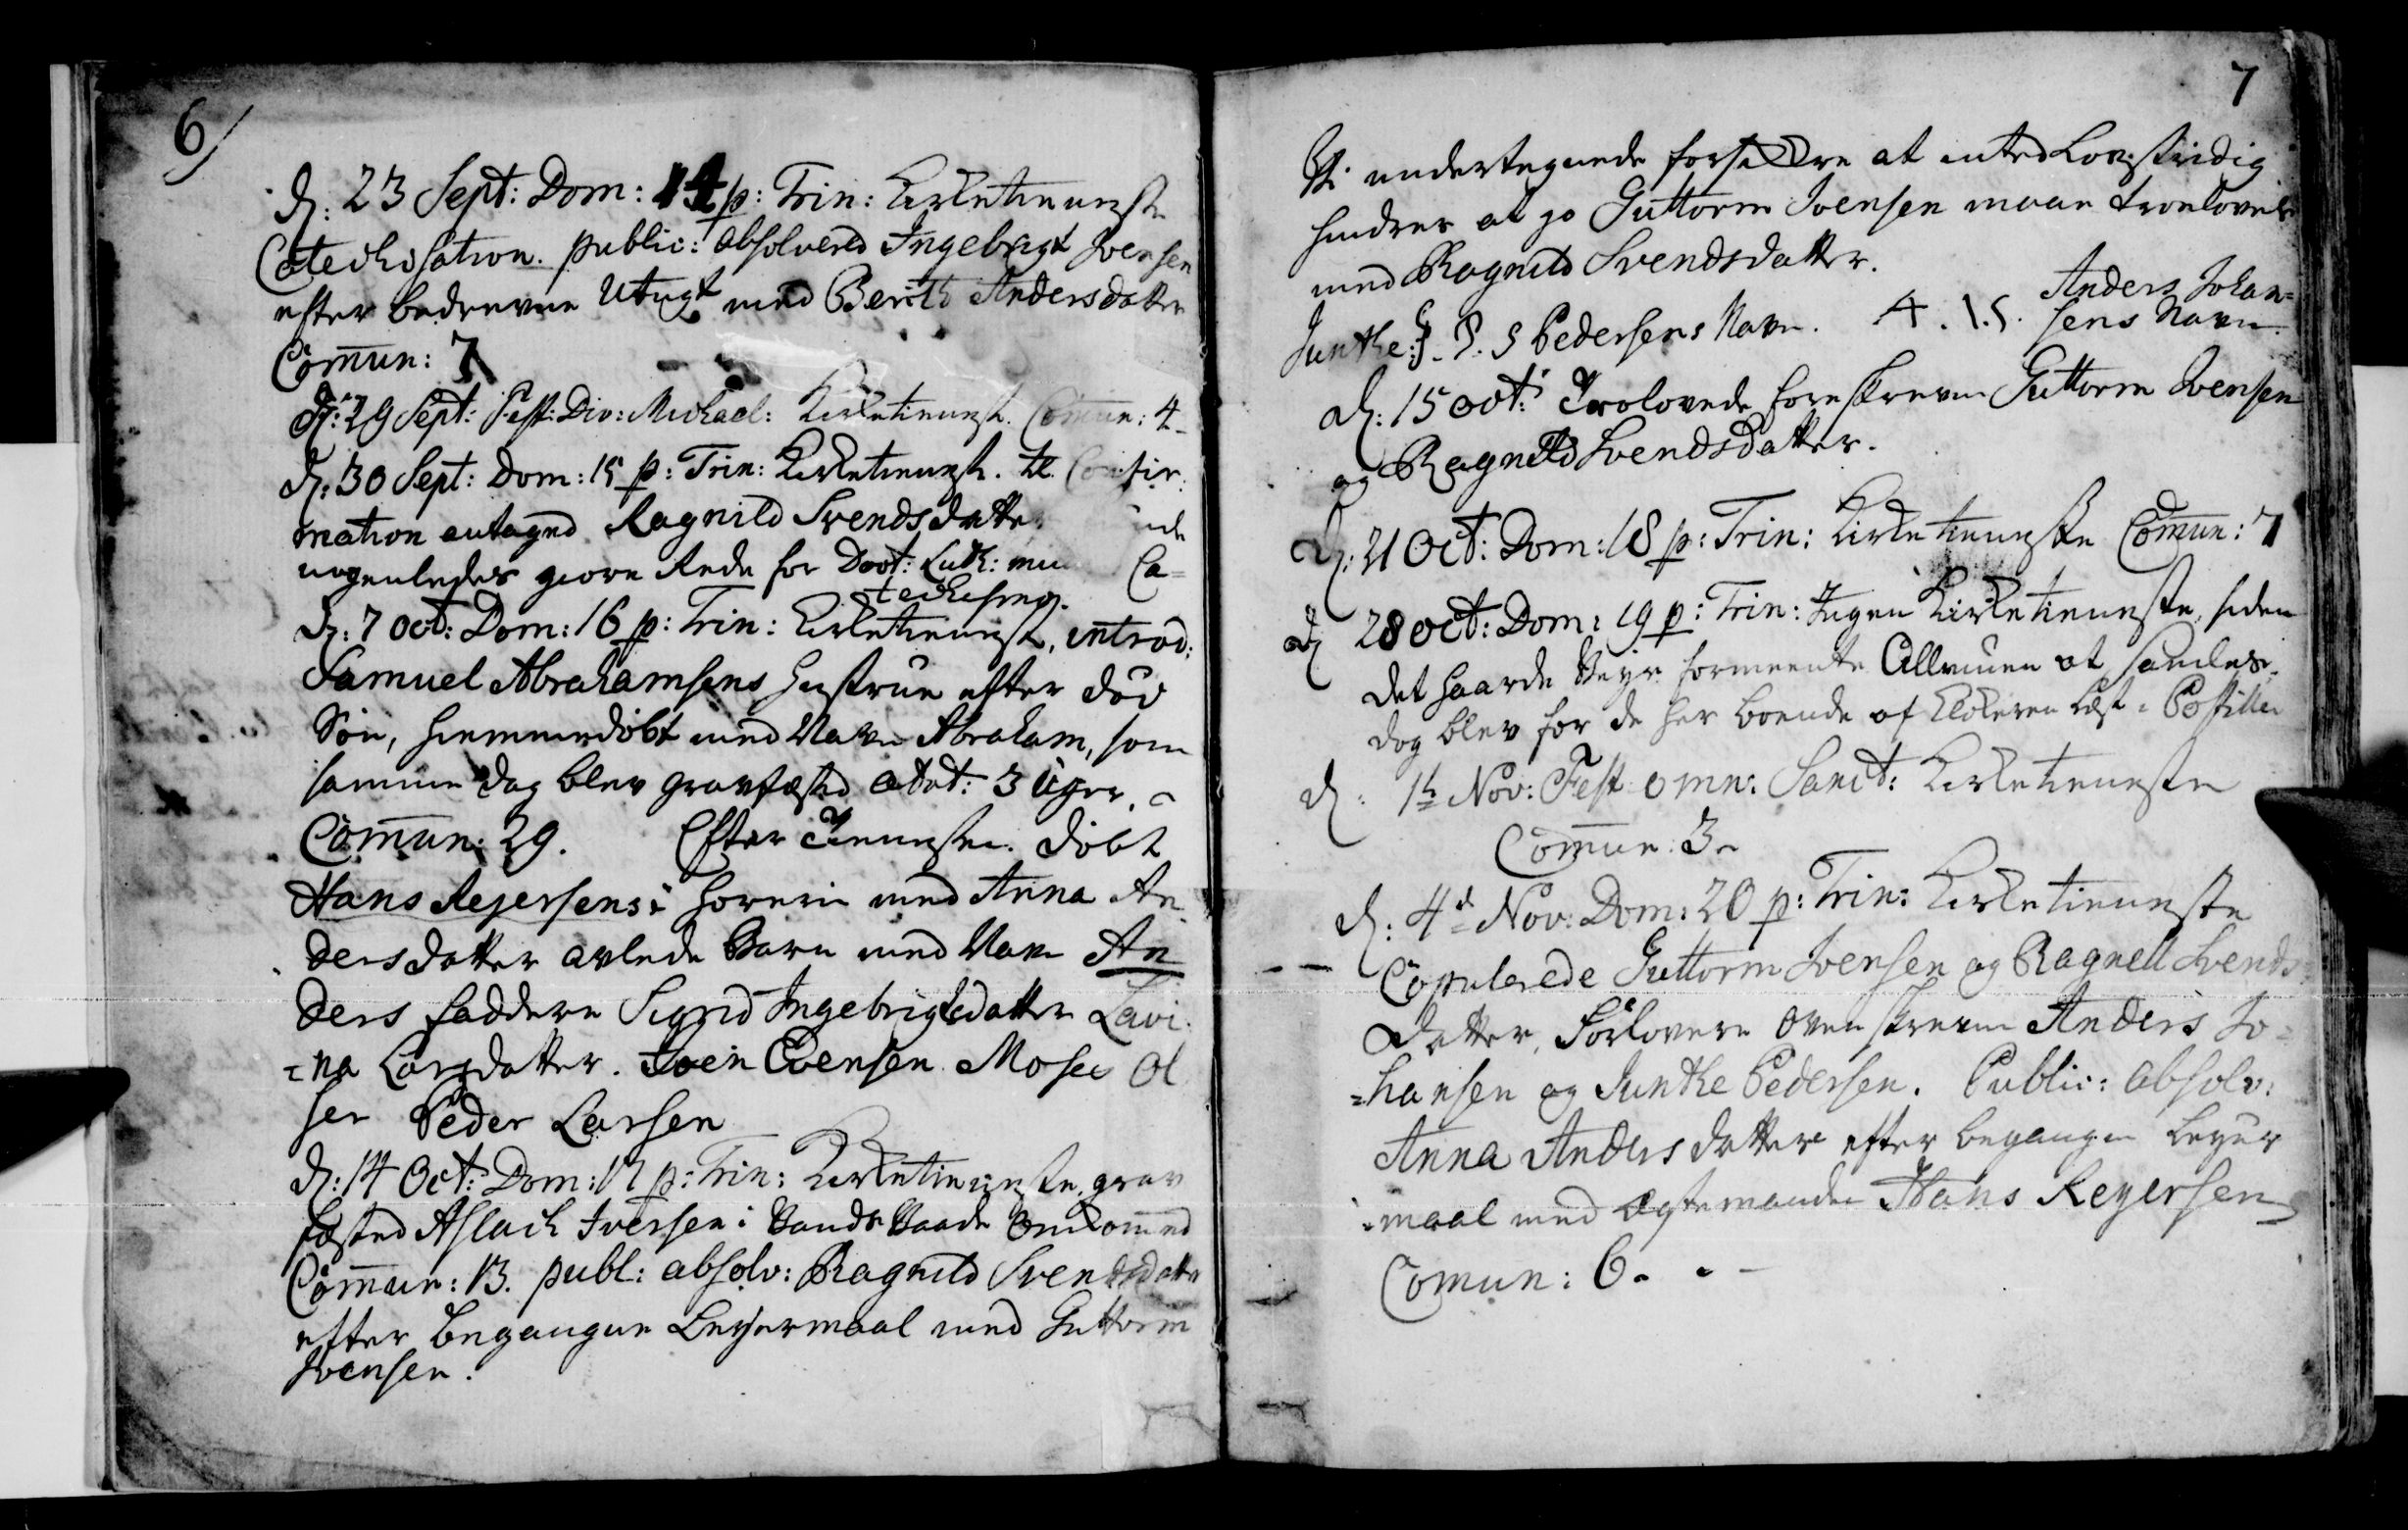 6
d: 23 Sept: Dom: 14 p: Trin: Kirketienneste
Catechisation. public: absolvered Ingebrigt Ivensen
efter bedreven Utugt med Berith Andersdatter
Com̄un: 7
d: 29 Sept: Fest: Div: Michael: Kirketiennest. Com̄un: 4
d: 30 Sept: Dom: 15 p: Trin: Kirketiennest. til Confir
mation antagned Ragnild Svendsdatter
nogenledes giøre Rede for Doct: Luth: Ca=
techismo.
d: 7 Oct: Dom: 16 p: Trin: Kirketiennest, introd:
Samuel Abrahamsens Hustrue efter død
Søn, hiemmedøbt med Navn Abraham, som
samme dag blev gravfæsted ætat: 3 Uger.
Com̄un: 29. Efter Tiennesten døbt
Hans Rejersens i Horerie med Anna An
dersdatter avlede Barn med Navn An
ders faddere Sigrid Ingebrigtsdatter Lavi
=na Larsdatter. Iven Evensen Moses Ol
sen Peder Larsen
d: 14 Oct: Dom: 17 p: Trin: Kirketienneste, grav
fæsted Aslach Iversen i Vands Vaade omkom̄ed
Com̄un: 13. publ: absolv: Ragnild Svendsdatter
efter begangne Leyermaal med Guttorm
Ivensen.
7
Vi undertegnede forsikkre at intet Lovstridig
hindrer at jo Guttorm Ivensen maae trovloves
med Ragnild Svendsdatter.
Anders Johan=
Junthe P. S Pedersens Navn. A. I. S. sens Navn.
d: 15 Oct: Trolovede foreskrevne Guttorm Ivensen
og Ragnild Svendsdatter.
d: 21 Oct: Dom: 18 p: Trin: Kirketienneste Com̄un: 7
d 28 Oct: Dom: 19 p: Trin: Ingen Kirketienneste, siden
det haarde Veyr formeente Allmuen at samles,
dog blev for de her boende af Klokeren læst i Postillen
d: 1te Nov: Fest omn: Sanct: Kirketienneste
Com̄un: 3
d: 4de Nov: Dom: 20 p: Trin: Kirketienneste
Copulerede Guttorm Ivensen og Ragnell Svends
datter, Forlovere ovenskrevne Anders Jo=
=hansen og Junthe Pedersen. Public: absolv:
Anna Andersdatter efter begangen Leyer
=maal med Ægtemanden Hans Reyersen
Comun: 6.